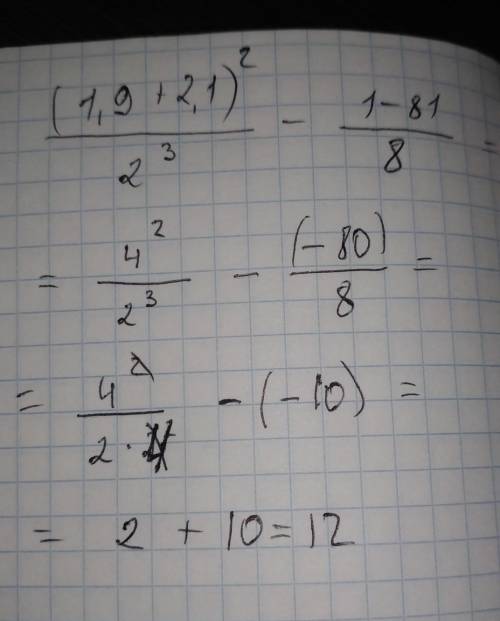 (1,9 + 2,1)² / 2³ - 1-81 / 8 =
= 4² / 2³ - (-80) / 8 =
= 4² / 2·4 - (-10) =
= 2 + 10 = 12